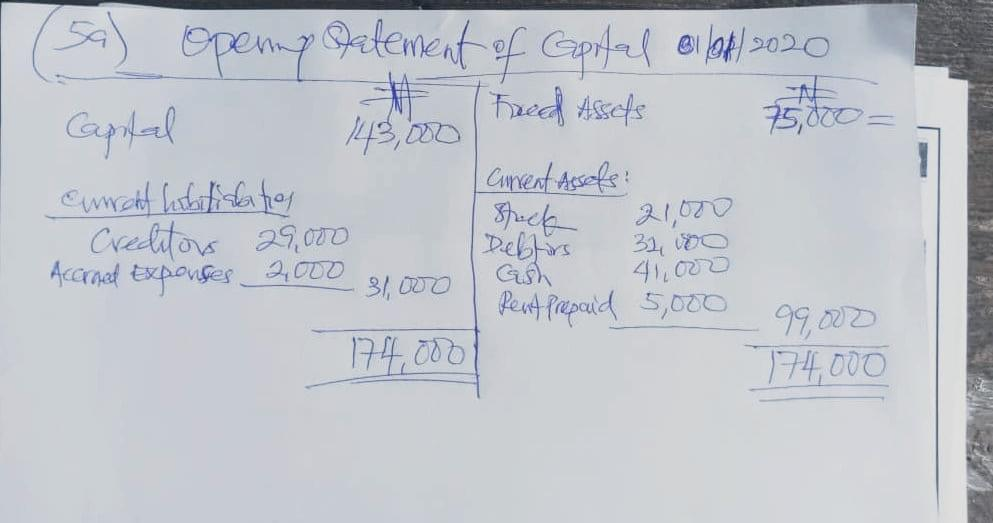 (5a) Opening Statement of Capital 01/01/2020
₦
Capital 143,000
Current liabilities
Creditors 29,000
Accrued Expenses 2,000 31,000
174,000
₦
Fixed Assets 75,000=
Current Assets:
Stock 21,000
Debtors 32,000
Cash 41,000
Rent Prepaid 5,000 99,000
174,000